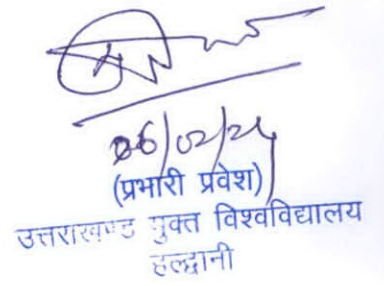 06/02/24
(प्रभारी प्रवेश)
उत्तराखण्ड मुक्त विश्वविद्यालय
हल्द्वानी